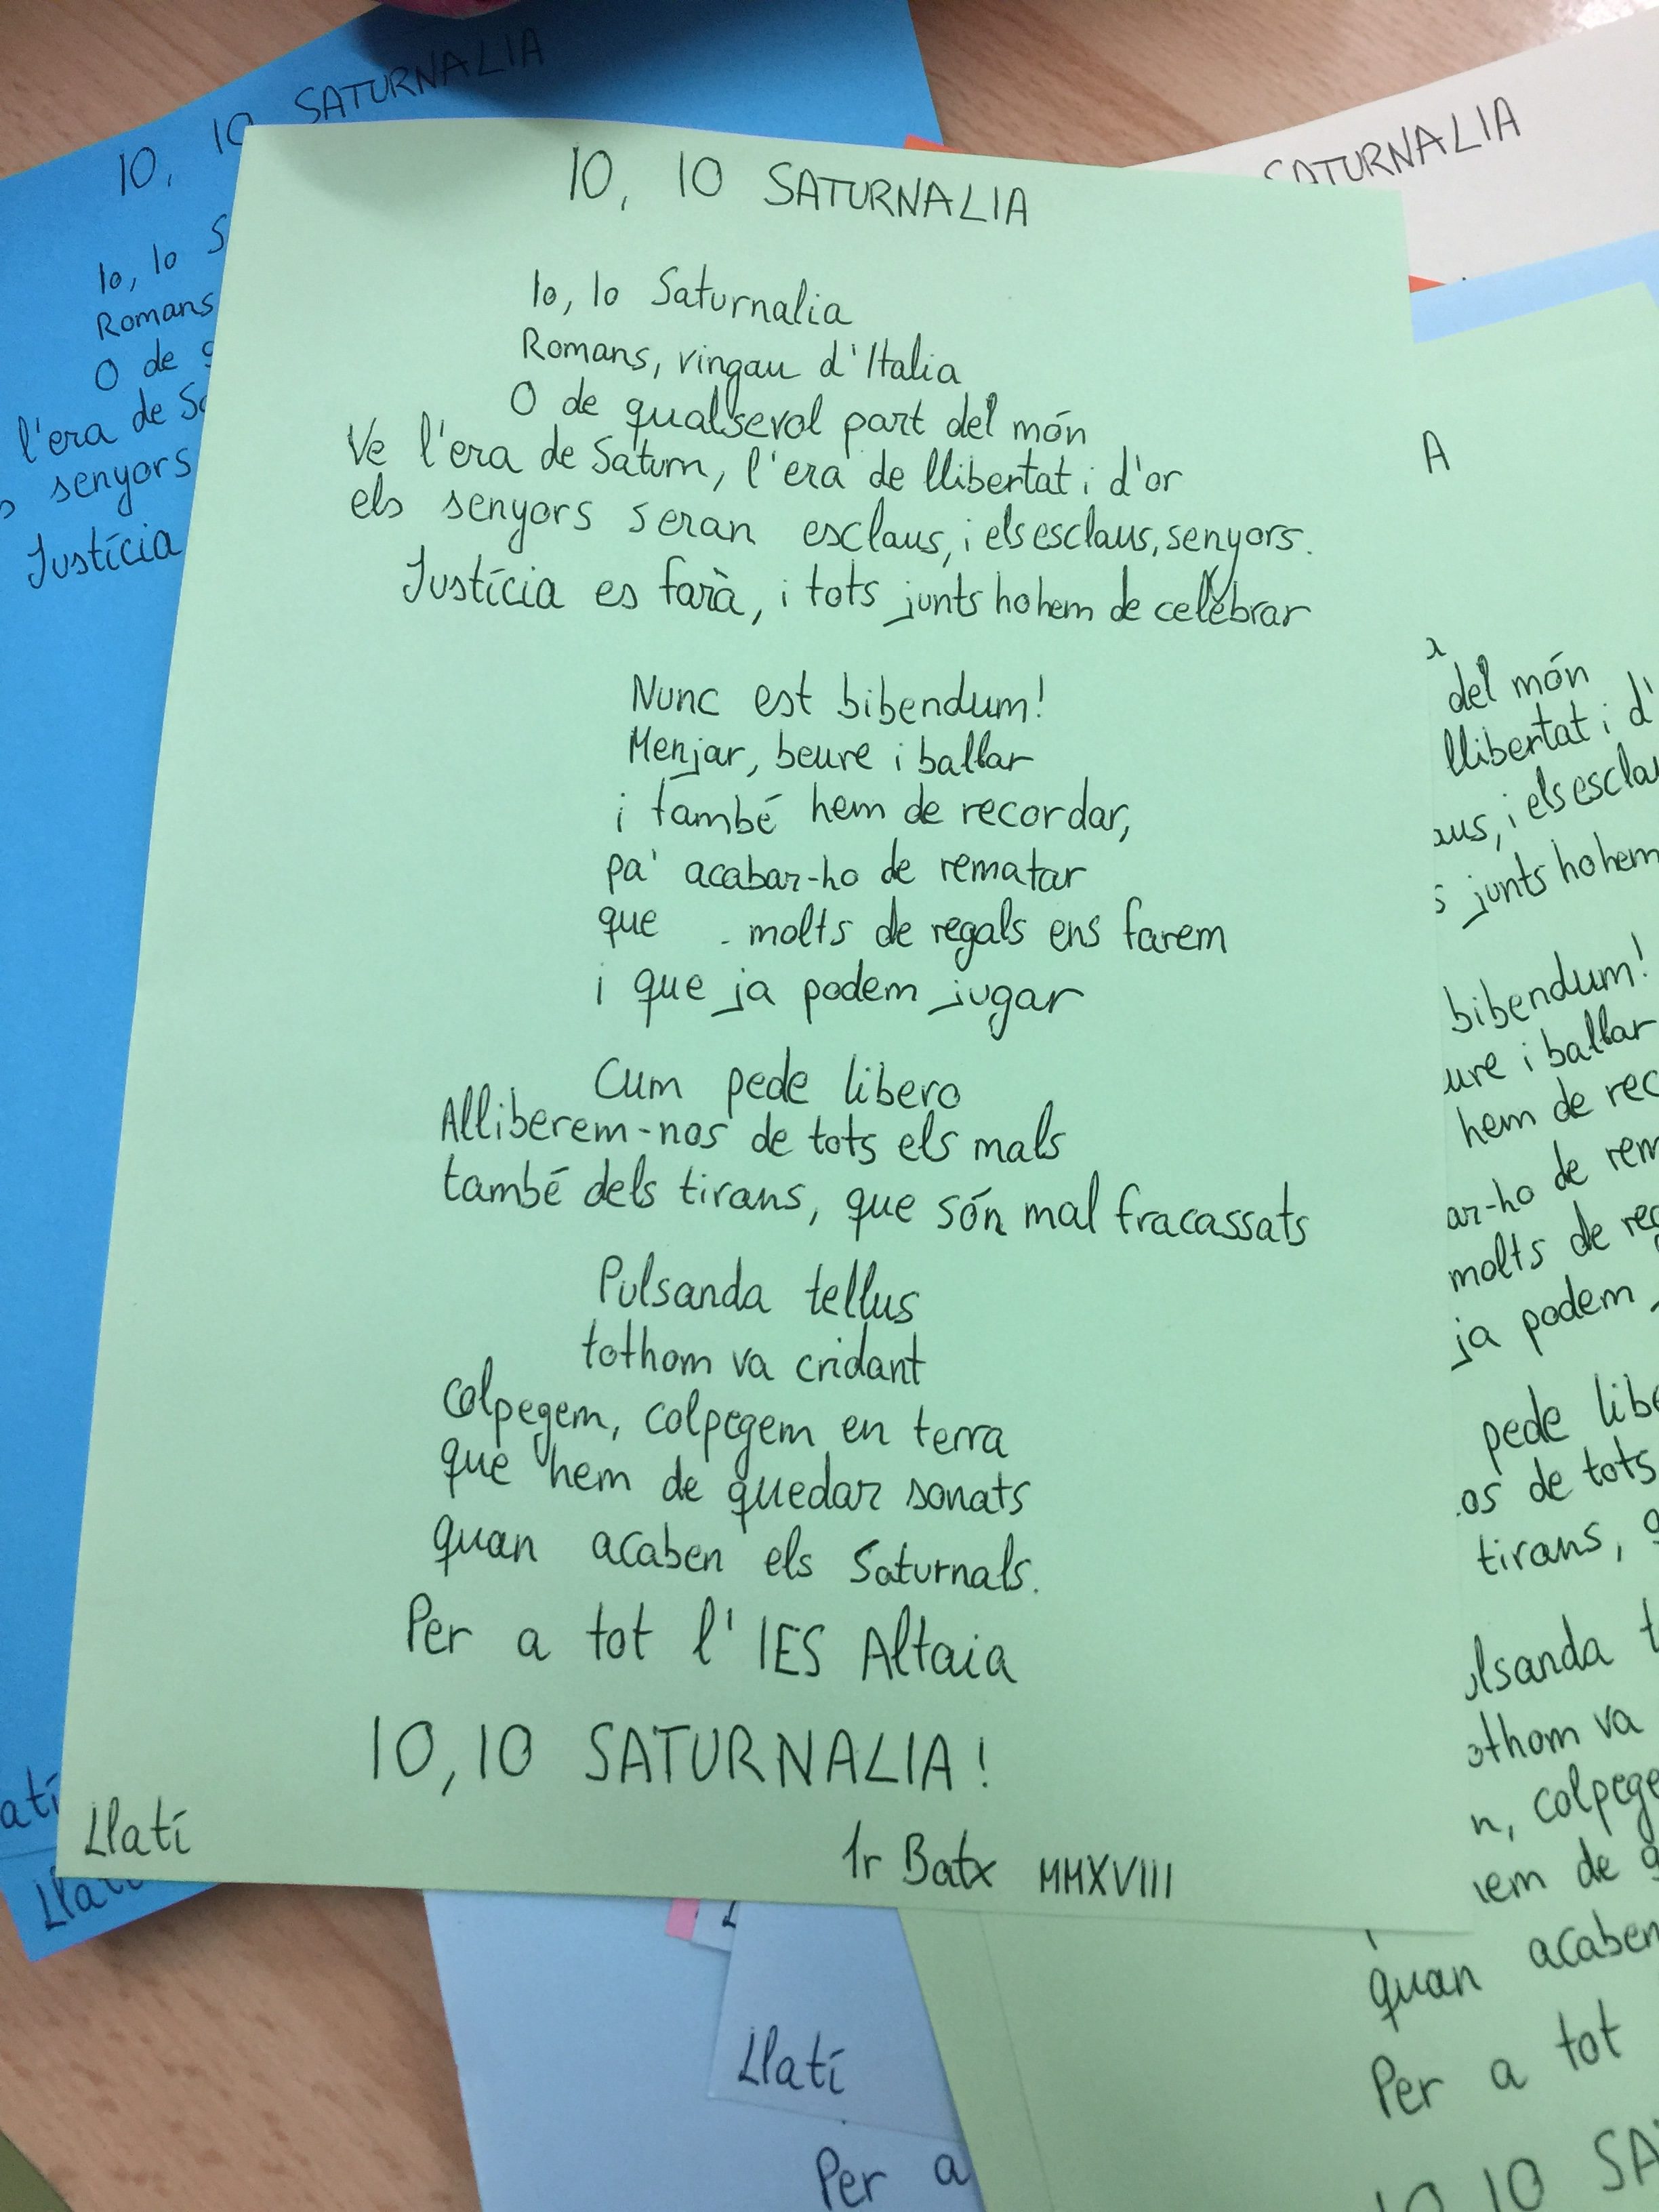 IO, IO SATURNALIA
Io, Io Saturnalia
Romans, vingau d'Italia
O de qualsevol part del món
Ve l'era de Saturn, l'era de llibertat i d'or
els senyors seran esclaus, i els esclaus, senyors.
Justícia es farà, i tots junts ho hem de celebrar
Nunc est bibendum!
Menjar, beure i ballar
i també hem de recordar,
pa' acabar-ho de rematar
que molts de regals ens farem
i que ja podem jugar
Cum pede libero
Alliberem-nos de tots els mals
també dels tirans, que són mal fracassats
Pulsanda tellus
tothom va cridant
Colpegem, colpegem en terra
que hem de quedar sonats
quan acaben els Saturnals.
Per a tot l'IES Altaia
IO, IO SATURNALIA!
Llatí
1r Batx MMXVIII
IO, IO SATURNALIA
Io, Io S
Romans
O de
l'era de Sa
senyors
Justícia
atí
Llatí
SATURNALIA
A
del món
llibertat i d'
aus, i els escla
s junts ho hem
bibendum!
ure i ballar
hem de rec
ar-ho de rem
molts de reg
ja podem
pede libe
os de tots
tirans, q
lsanda t
othom va
n, colpege
em de q
quan acaben
Per a tot
IO IO SA
Llatí
Per a